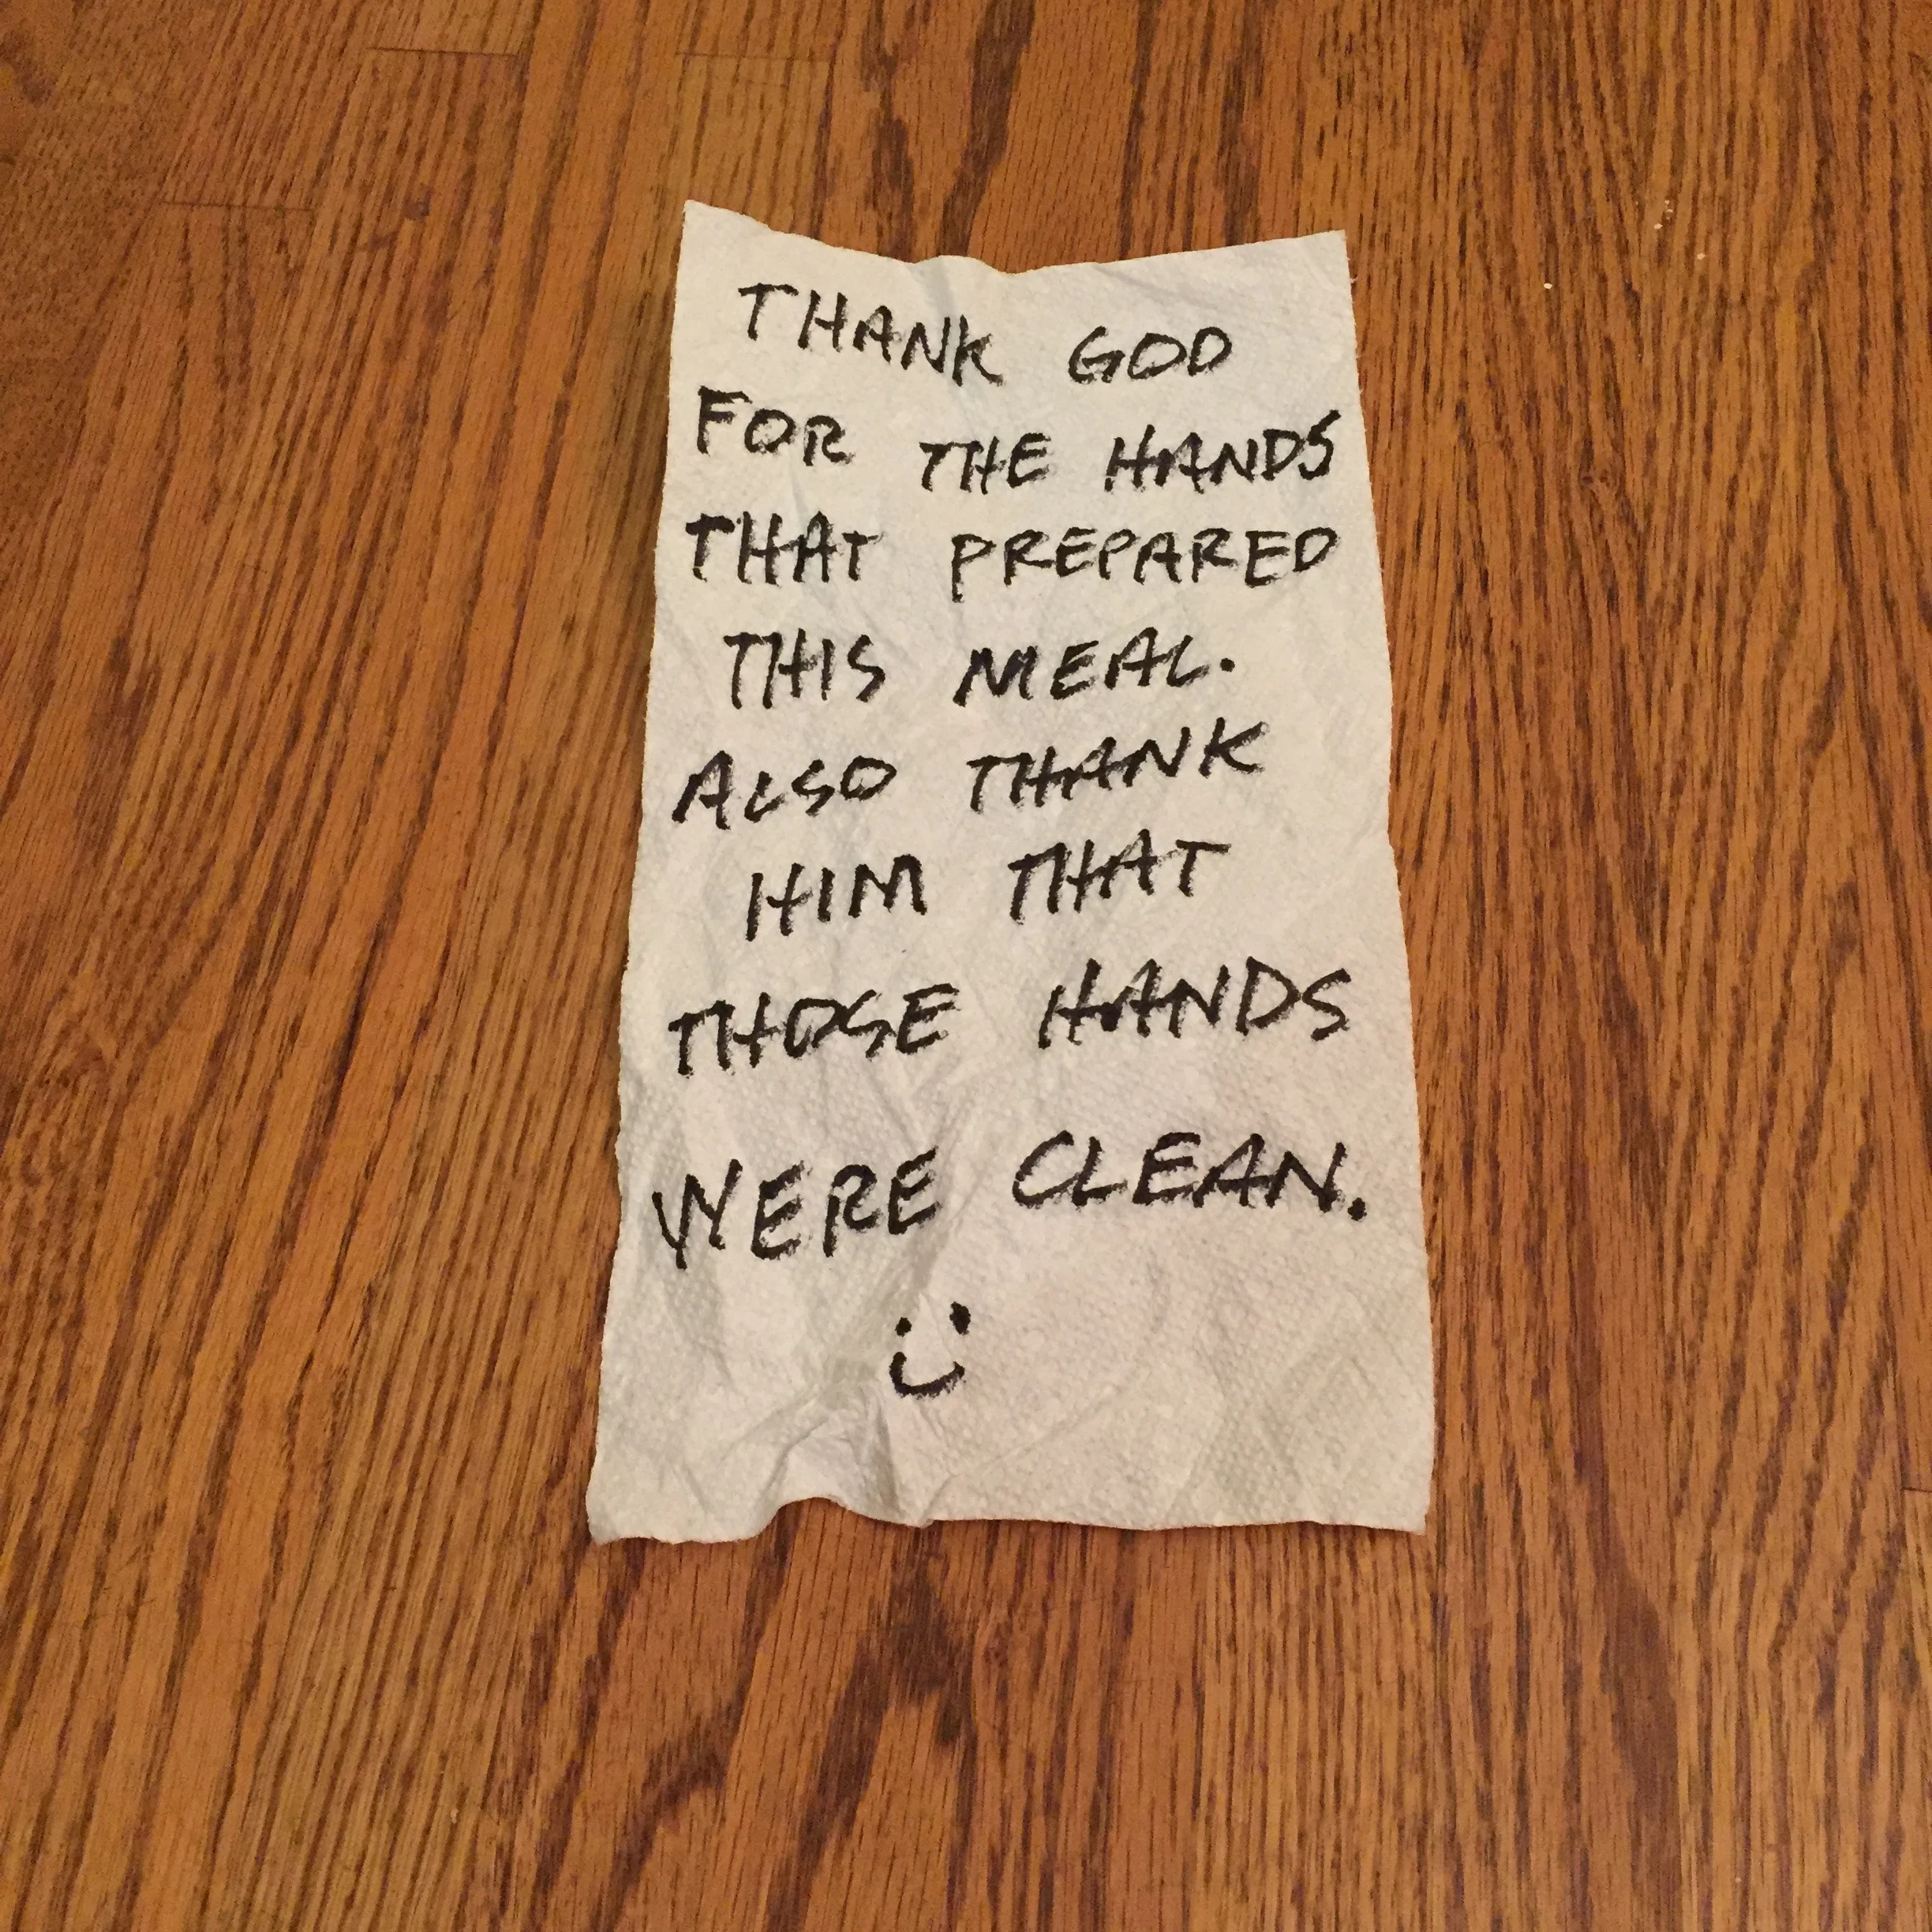 THANK GOD
FOR THE HANDS
THAT PREPARED
THIS MEAL.
ALSO THANK
HIM THAT
THOSE HANDS
WERE CLEAN.